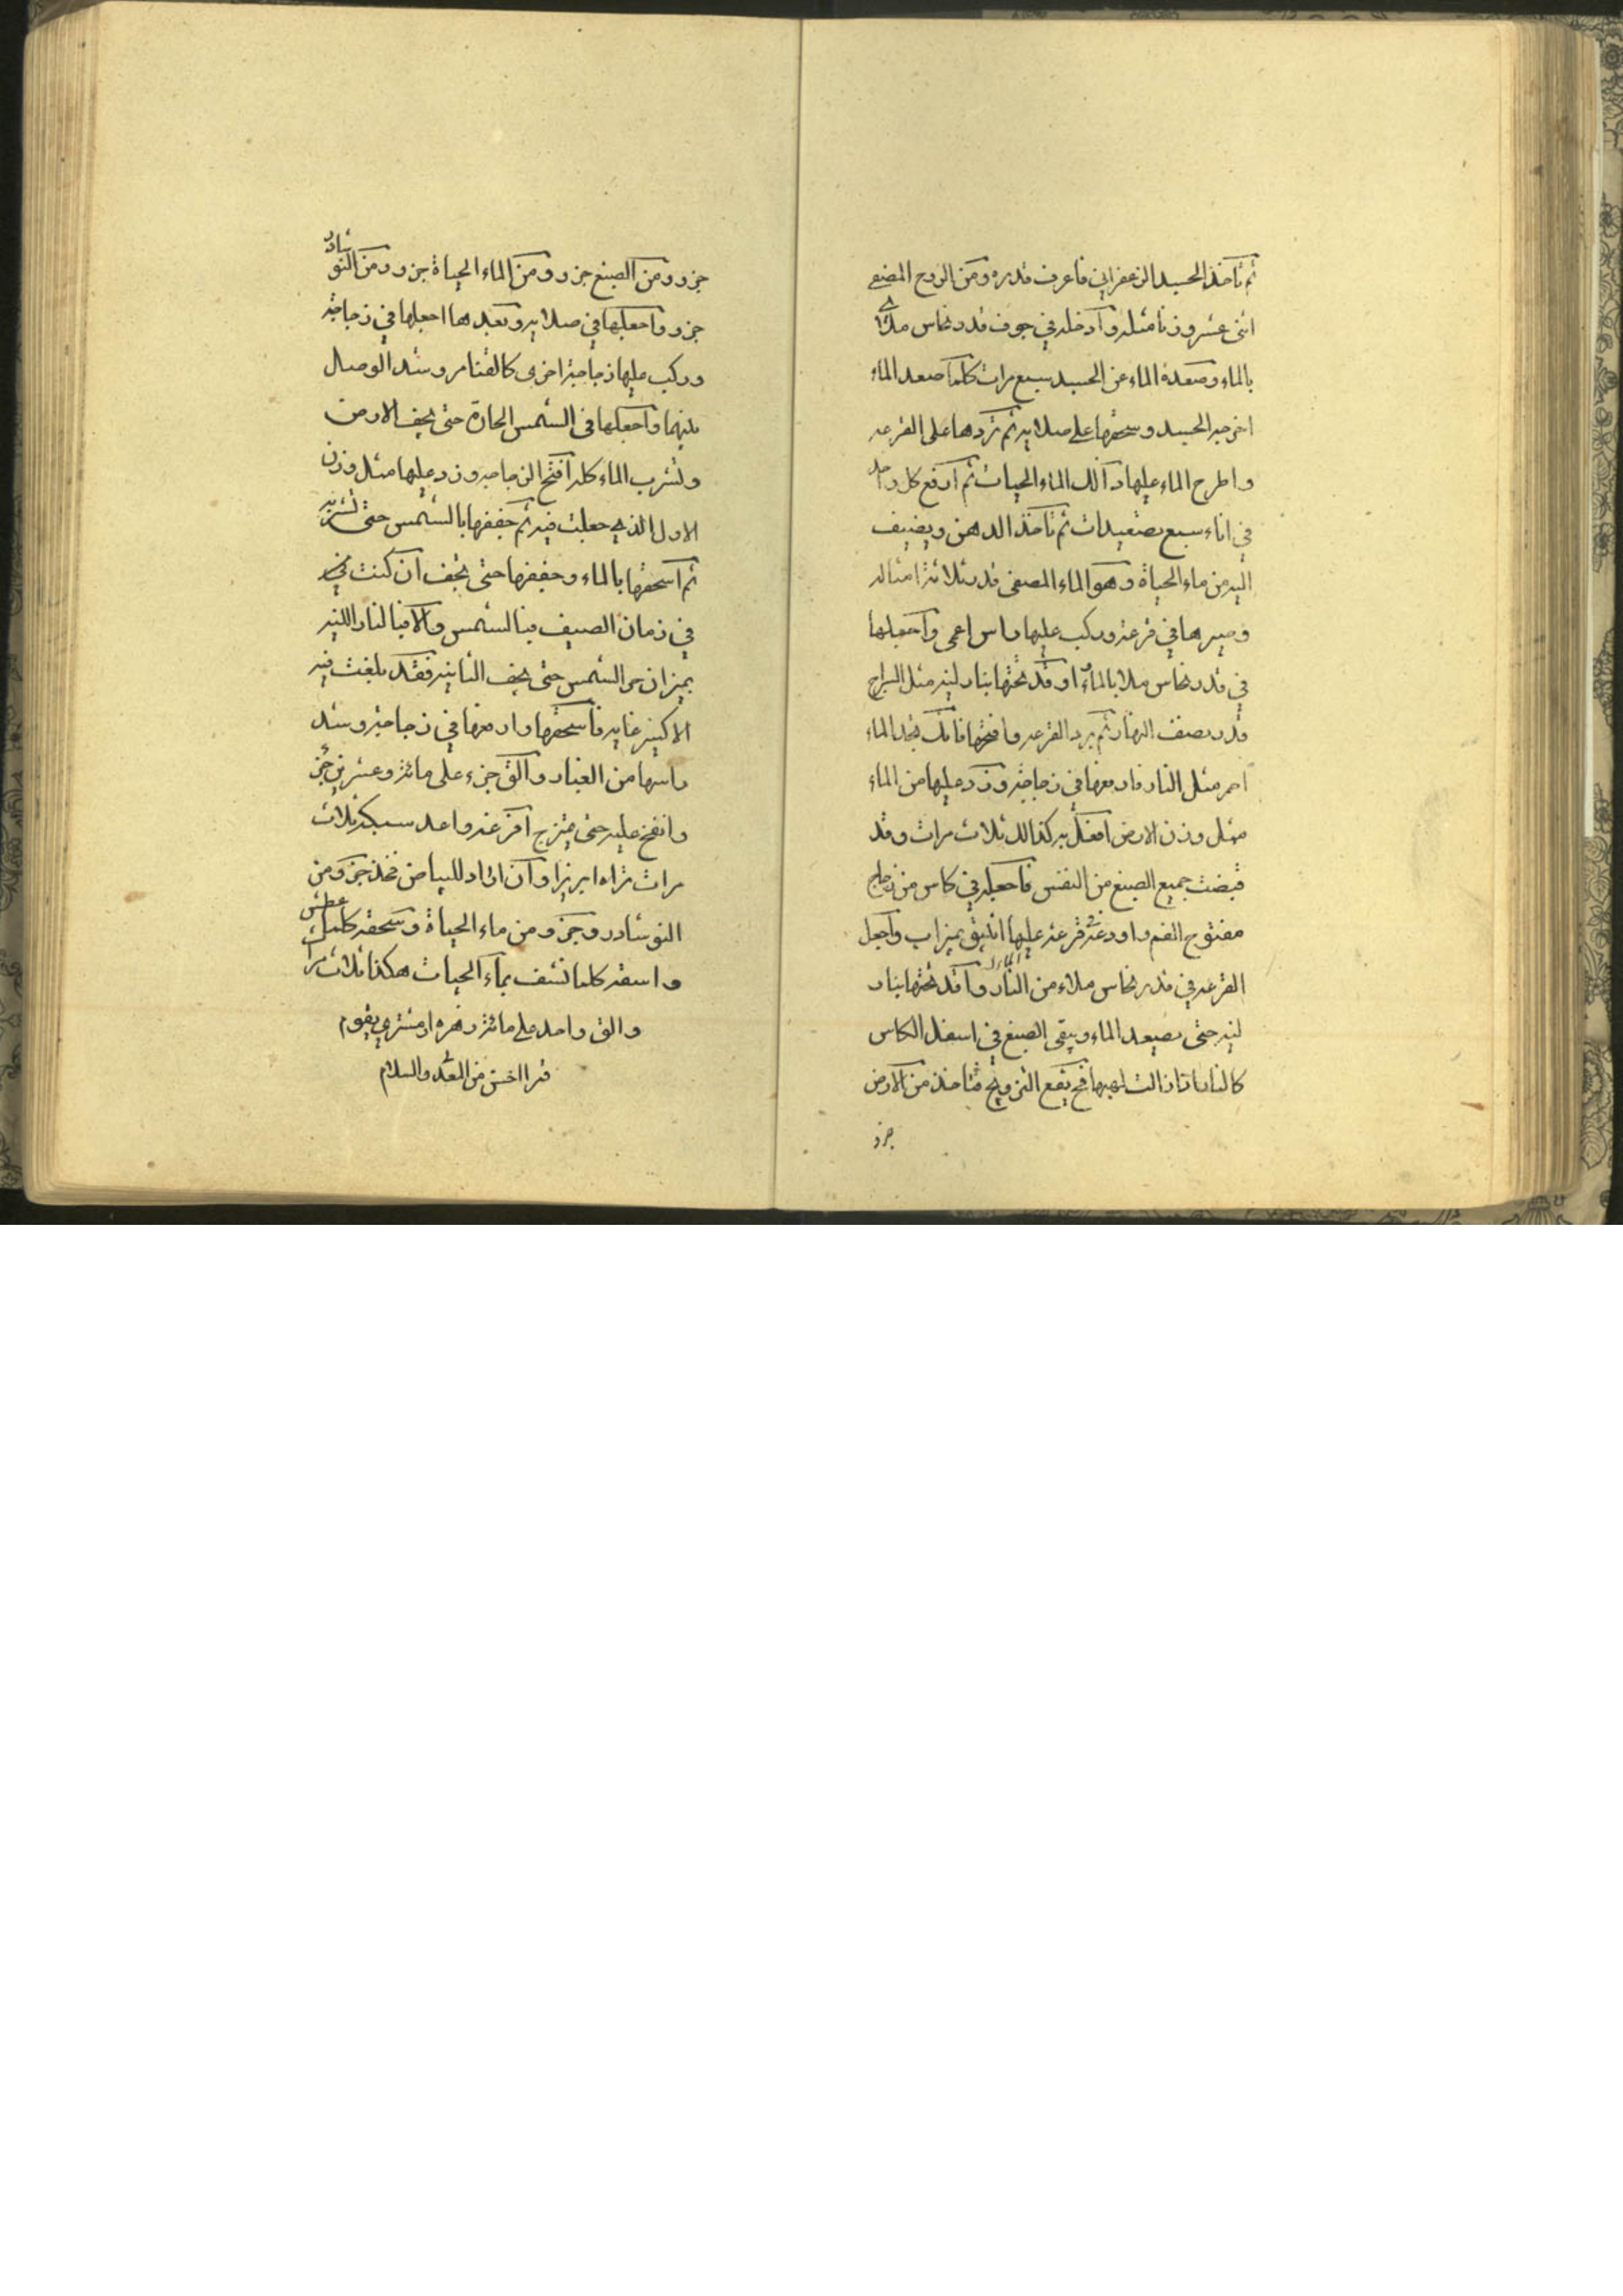 ثم تاخذ الجسد الزعفراني فاعرف قدره ومن الروح المصفي
اثنى عشر وزنا مثله وادخله في جوف قدر نحاس ملائ
بالماء وصعدة الماء عن الجسد سبع مرات كلما صعد الماء
اخرجه الجسد وسحقها على صلايه ثم تردها على القرعه
واطرح الماء عليها ذالك الماء الحيات ثم ارفع كل واحد
في اناء سبع تصعيدات ثم تاخذ الدهن ويضيف
اليه من ماء الحياة وهو الماء المصفى قدر ثلاثة امثاله
وصيرها في قرعة وركب عليها راس اعمى واجعلها
في قدر نحاس ملا بالماء اوقد تحتها بنار لينه مثل السراج
قدر نصف النهار ثم برد القرعه وافتحها فانك تجد الماء
احمر مثل النار فارفعها في زجاجة وزد عليها من الماء
مثل وزن الارض افعل به كذالك ثلاث مرات وقد
قبضت جميع الصبغ من النفس فاجعله في كاس من زجاج
مفتوح الفم واودعته قرعة عليها انبيق بميزاب واجعل
القرعه في قدر نحاس ملاء من النار واقد تحتها بنار
لينه حتى يصعد الماء ويبقى الصبغ في اسفل الكاس
كالنار اذا زالت لهيبها فح يقع التزويج فتاخذ من الارض
جزو
جزو ومن الصبغ جزو ومن الماء الحياة جزو ومن النوشادر
جزو واجعلها في صلايه وبعدها اجعلها في زجاجة
وركب عليها زجاجة اخرى كالقنا مر وشد الوصال
بينهما واجعلها في الشمس الحارة حتى يجف الارض
وتشرب الماء كله افتح الزجاجه وزد عليها مثل وزن
الاول الذي جعلت فيه ثم جففها بالشمس حتى تشربه
ثم اسحقها بالماء وجففها حتى تجف ان كنت في
في زمان الصيف فبالشمس والا فبالنار اللينه
بميزان حر الشمس حتى يجف الثانيه فقد بلغت فيه
الاكسير غايه فاسحقها وارفعها في زجاجة وشد
راسها من الغبار والق جزء على مائة وعشرين جز
وانفخ عليه حتى يمتزج افرغه واعد سبكه ثلاث
مرات تراه ابريزا وان اراد للبياض فخذ جزو من
النوشادر وجزو من ماء الحياة وسحقه كلما عطش
واسقه كلما نشف بماء الحيات هكذا ثلاث مرا
والق واحد على مائة زهره او مشتري يقوم
قمرا احسن من المعدن والسلام